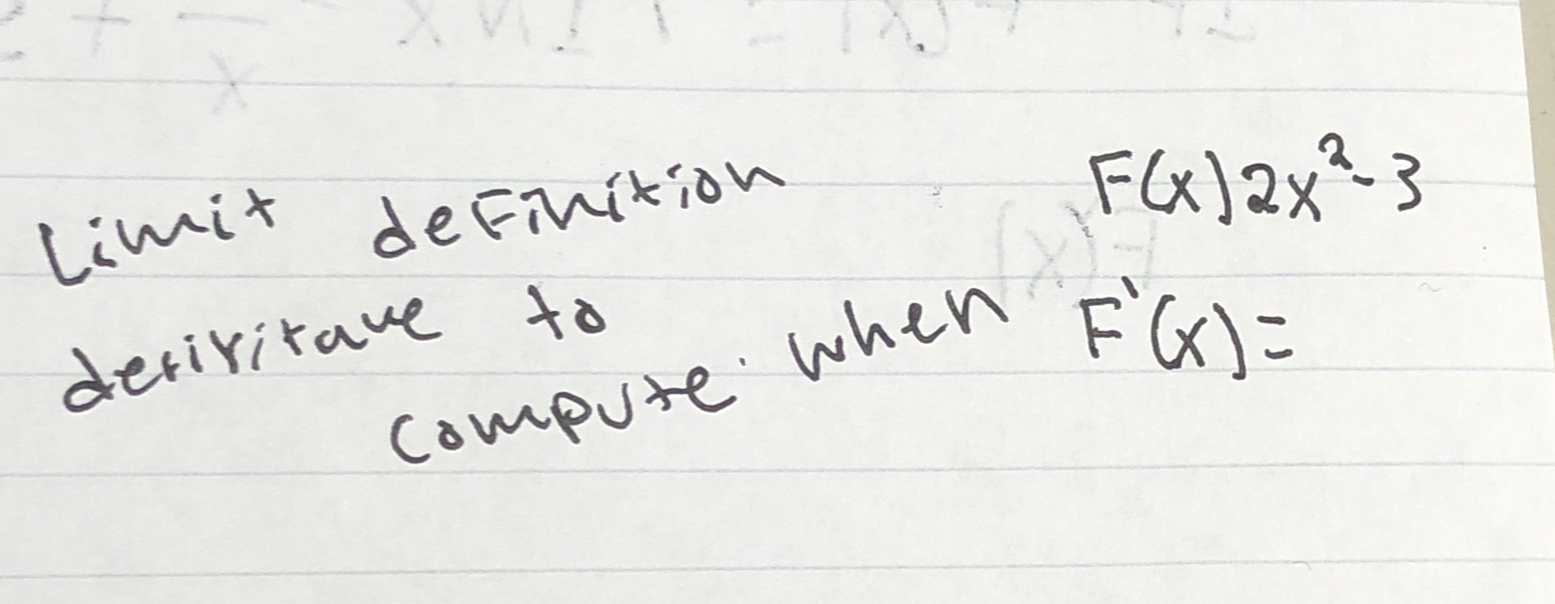 Limit definition
derivitave to
compute. when
F(x) 2x²-3
F'(x)=